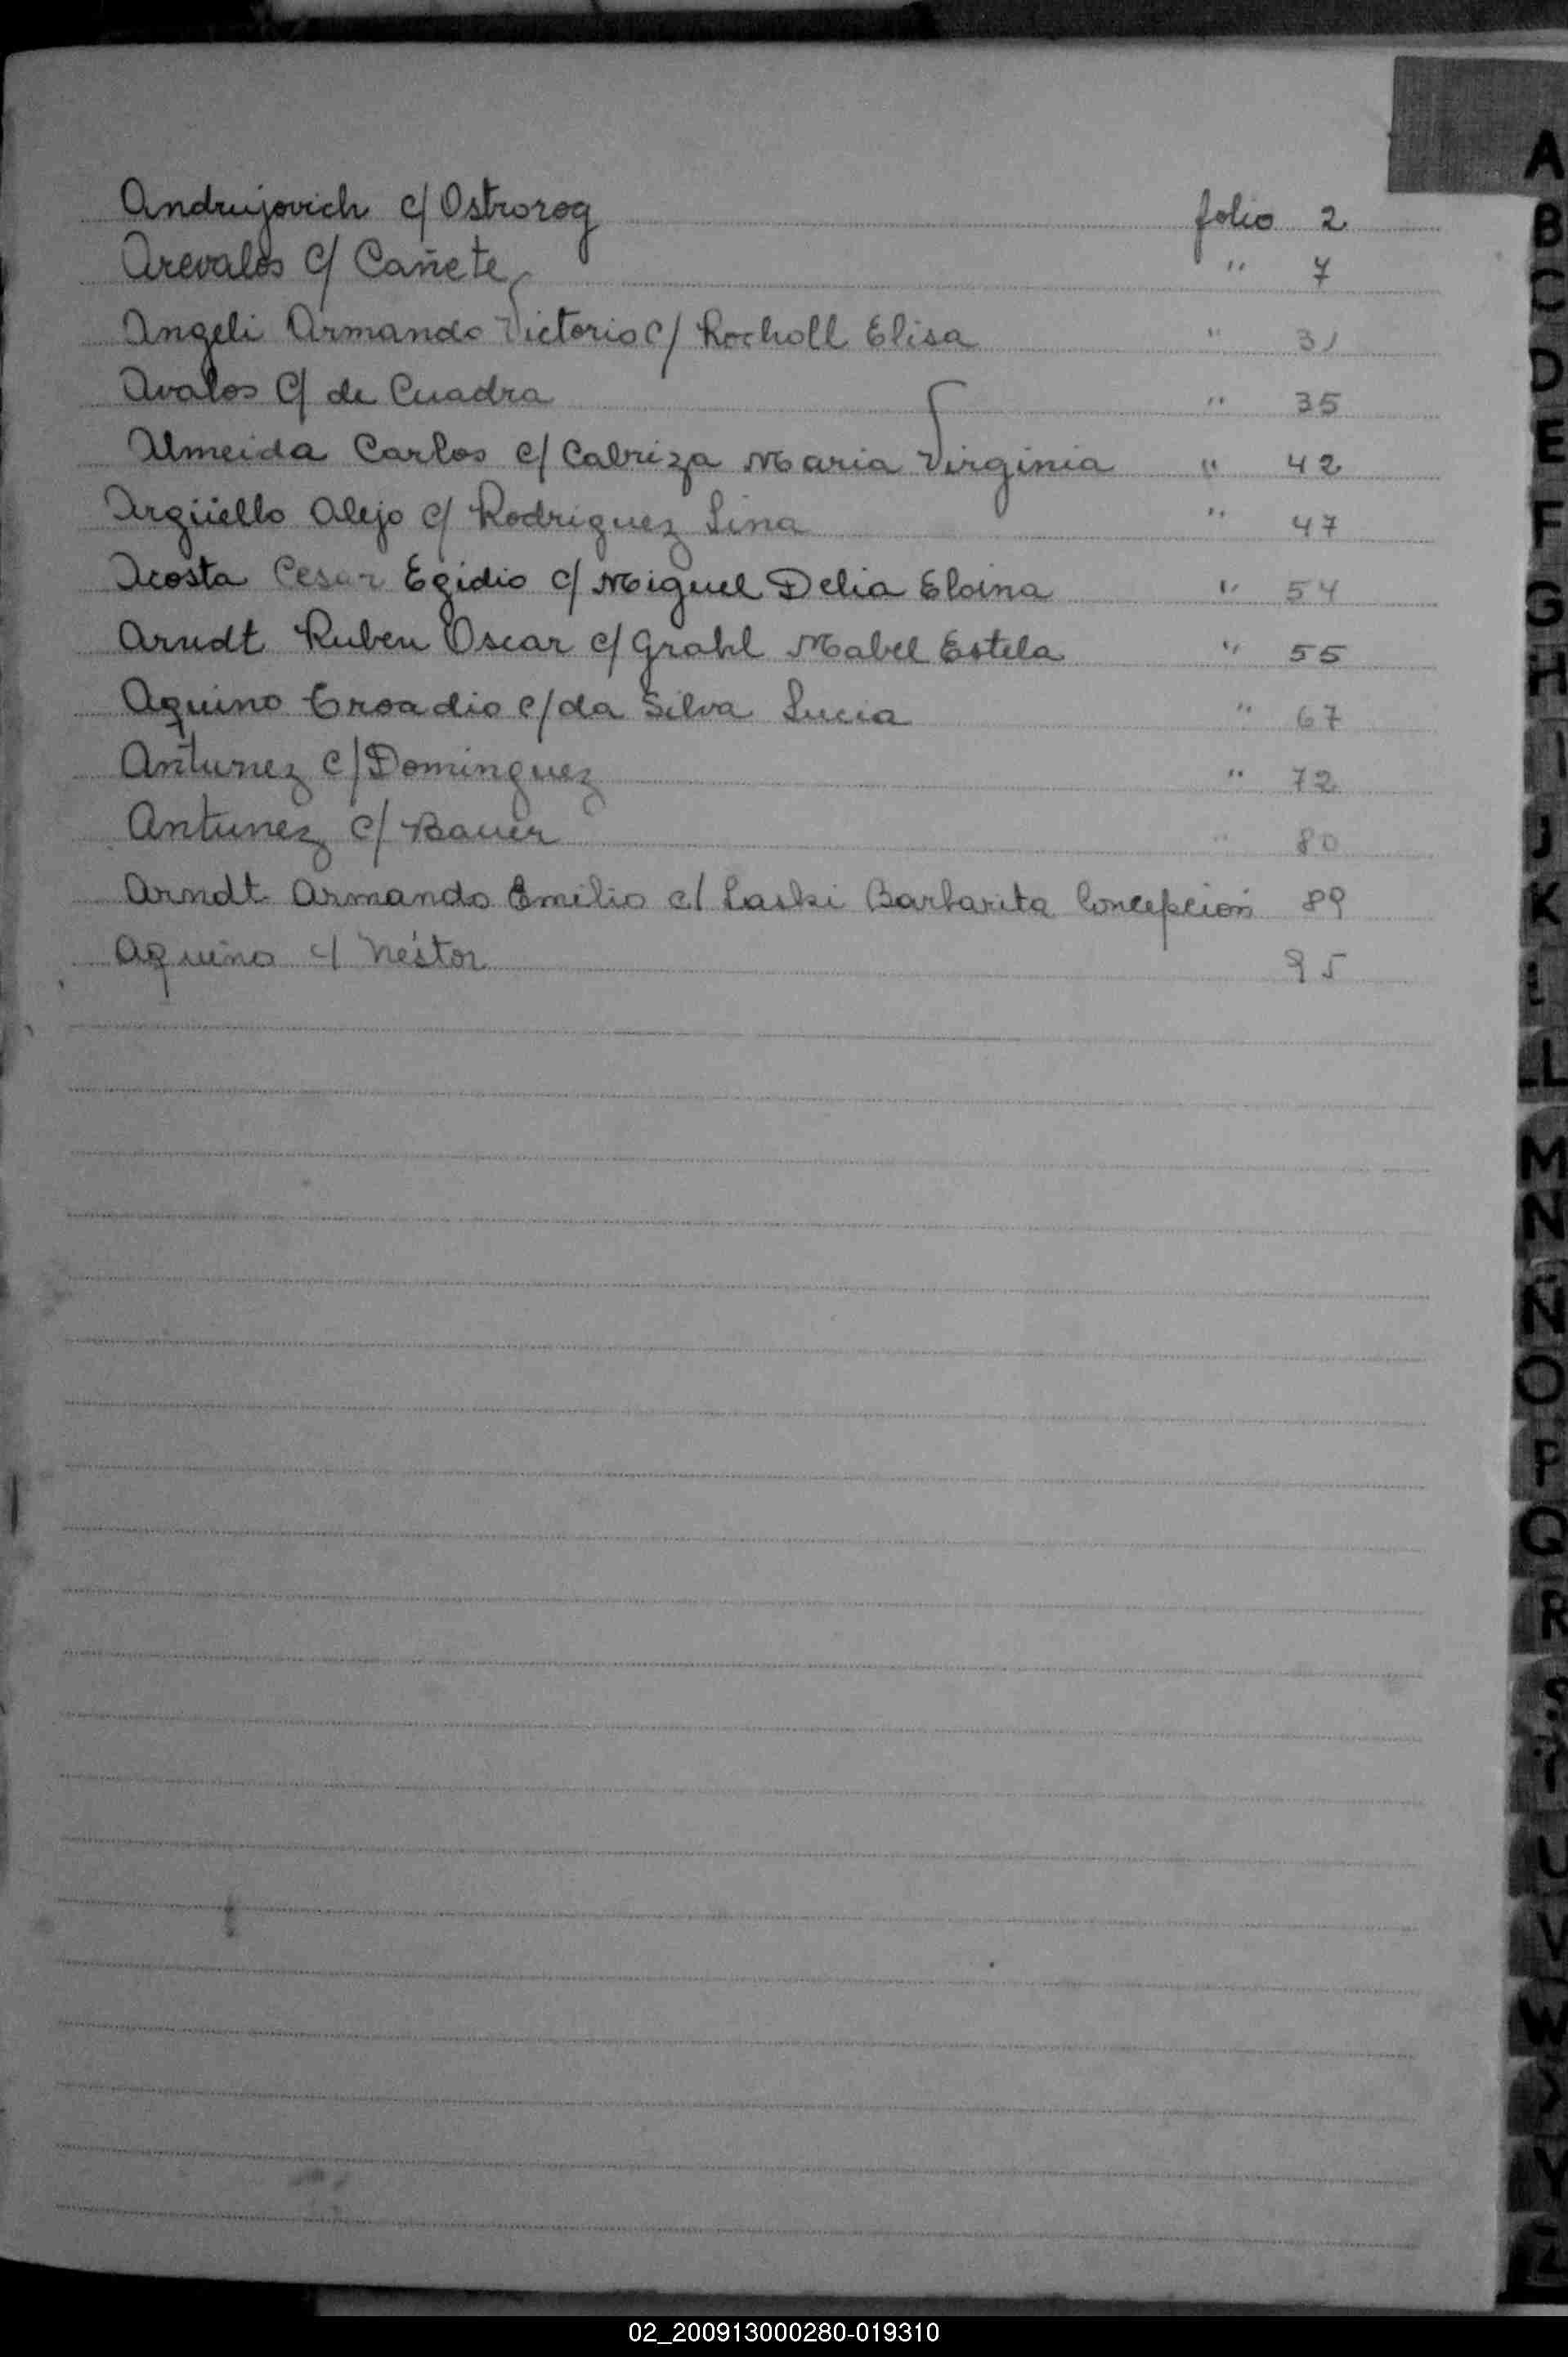 Andrujovich c/ Ostrorog folio 2
Arevalos c/ Cañete " 7
Angeli Armando Victorio c/ Rocholl Elisa " 31
Avalos c/ de Cuadra " 35
Almeida Carlos c/ Cabriza Maria Virginia " 42
Argüello Alejo c/ Rodriguez Lina " 47
Acosta Cesar Egidio c/ Miguel Delia Eloina " 54
Arndt Ruben Oscar c/ Grahl Mabel Estela " 55
Aquino Croadio c/ da Silva Lucia " 67
Antunez c/ Dominguez " 72
Antunez c/ Bauer " 80
Arndt Armando Emilio c/ Laski Barbarita Concepción 89
Aquino c/ Néstor 95
A
B
C
D
E
F
G
H
I
J
K
L
LL
M
N
Ñ
O
P
Q
R
S
T
U
V
W
X
Y
Z
02_200913000280-019310